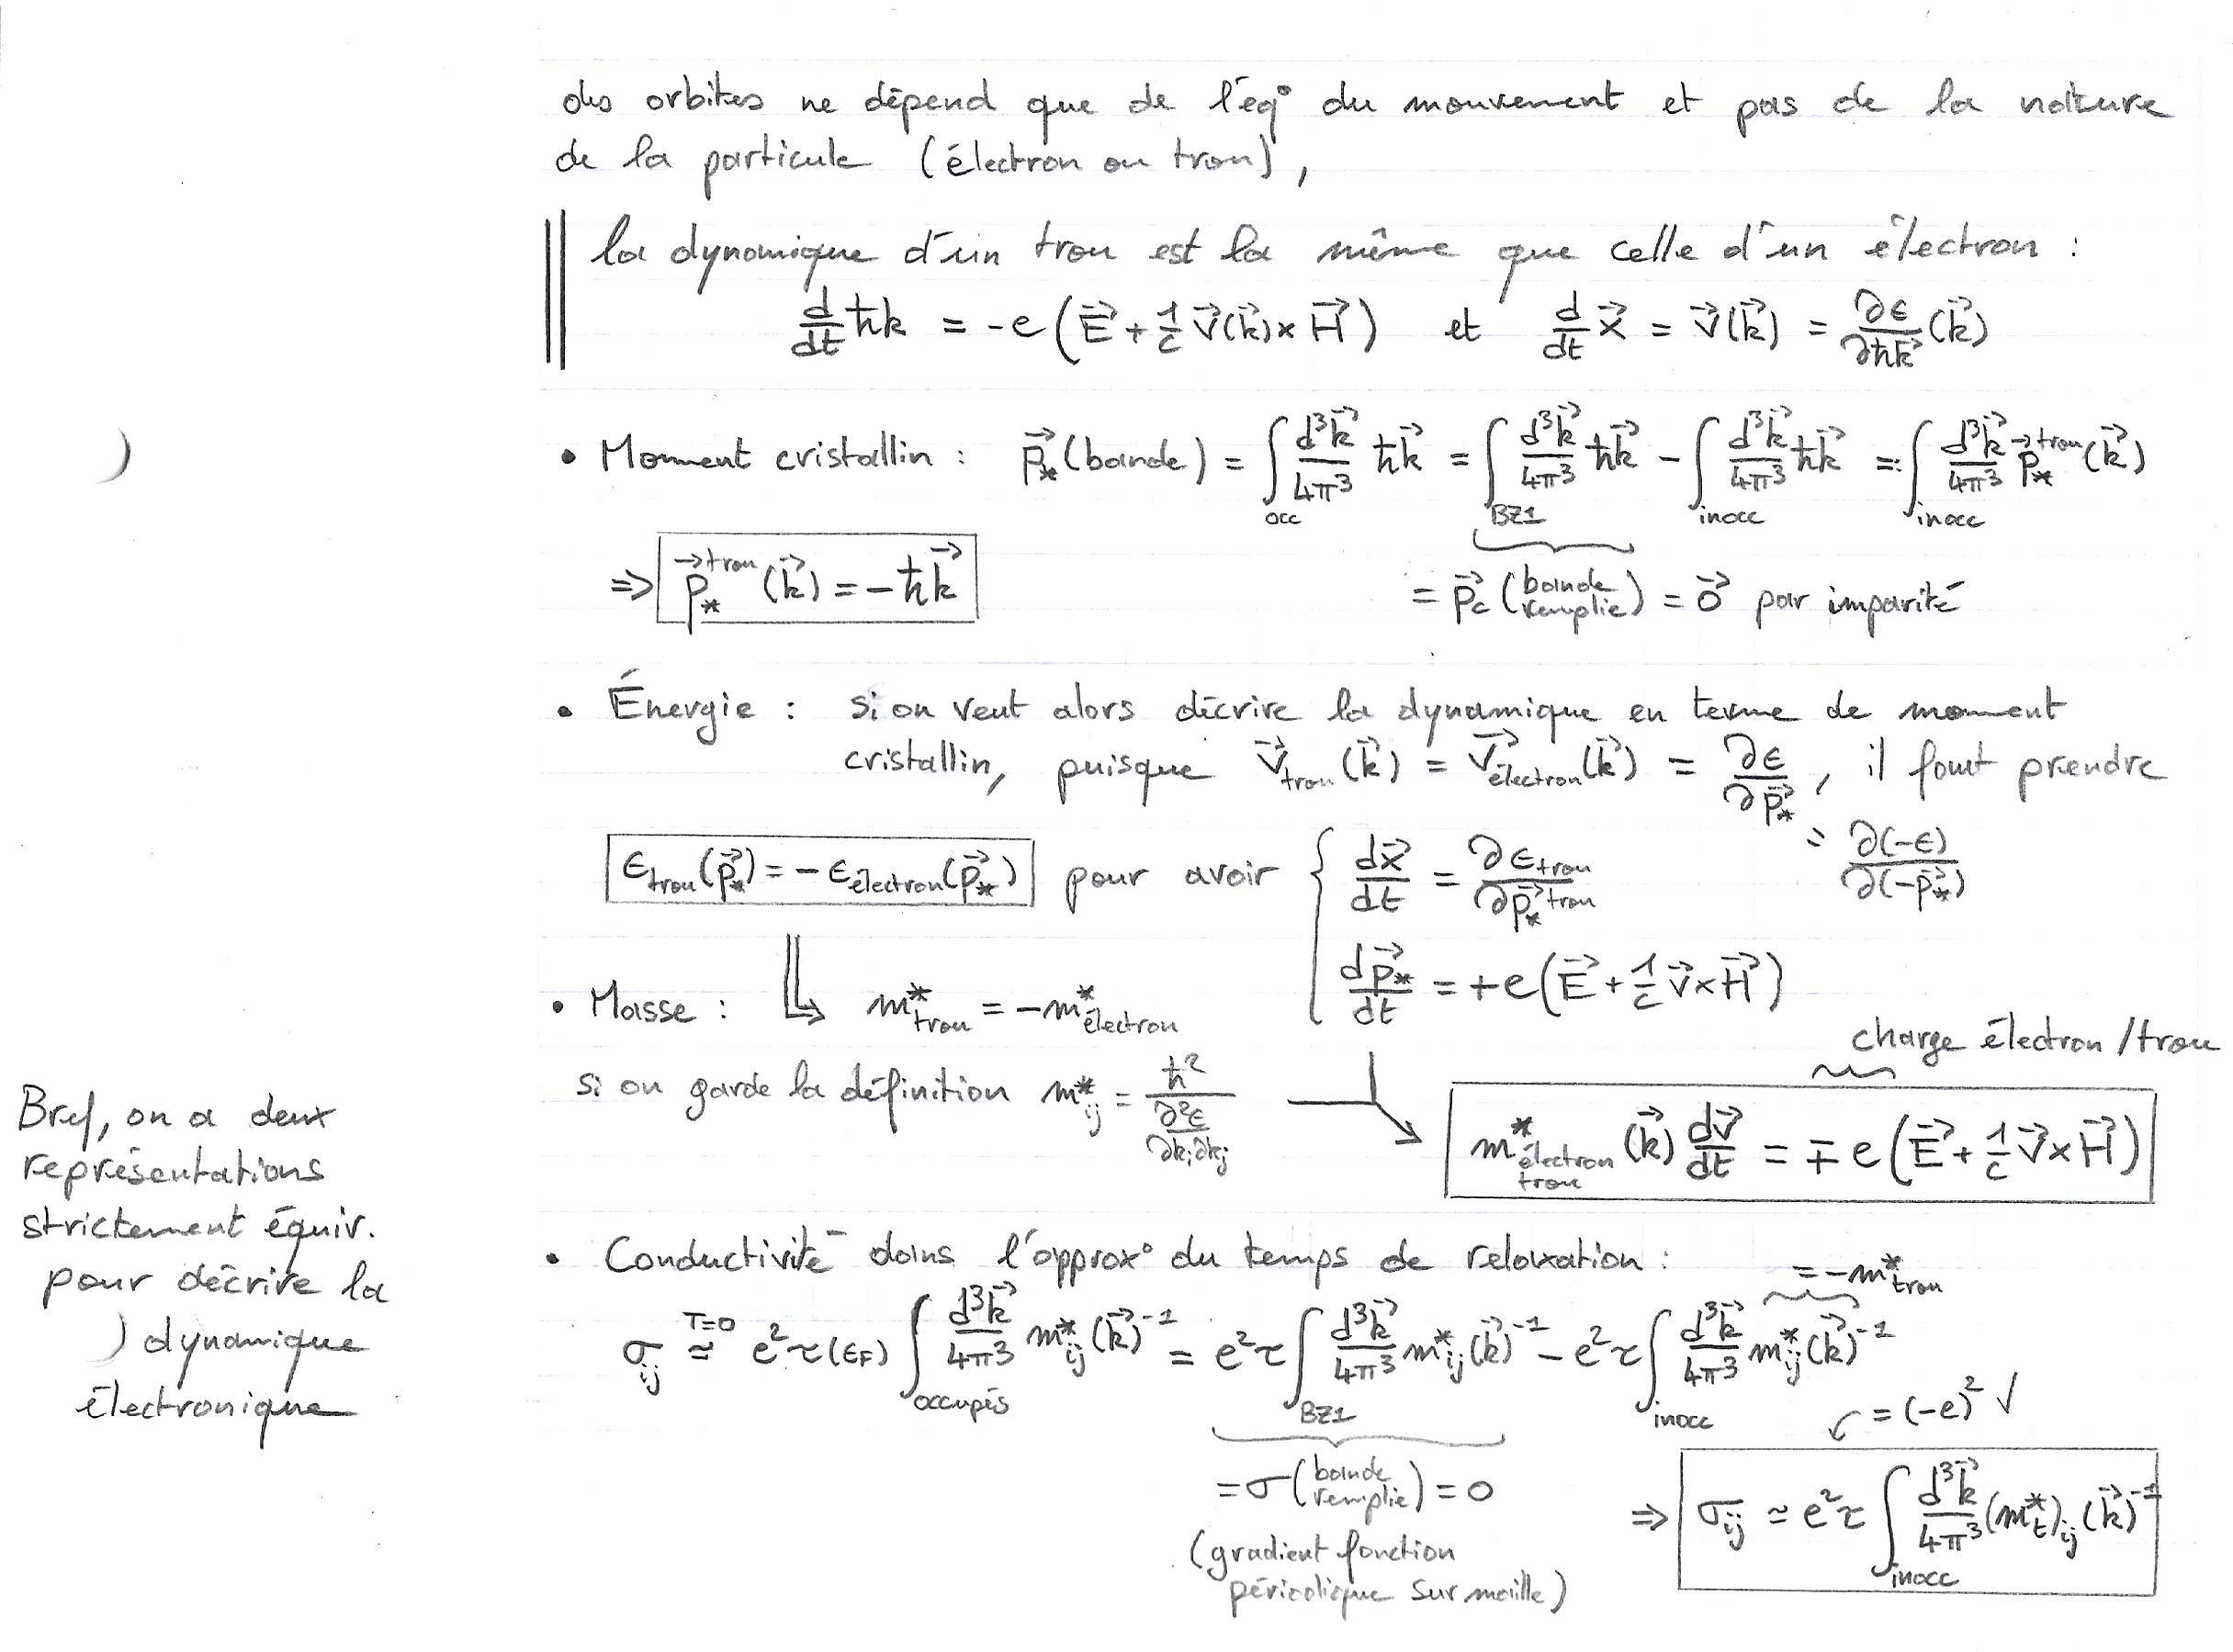 des orbites ne dépend que de l'éq° du mouvement et pas de la nature
de la particule (électron ou trou),
la dynamique d'un trou est la même que celle d'un électron :
d/dt ħk = -e(E⃗ + 1/c v⃗(k⃗) × H⃗) et d/dt x⃗ = v⃗(k⃗) = ∂ϵ/∂ħk⃗ (k⃗)
• Moment cristallin : p⃗_*(bande) = ∫_occ d³k⃗/4π³ ħk⃗ = ∫_BZ1 d³k⃗/4π³ ħk⃗ - ∫_inocc d³k⃗/4π³ ħk⃗ =: ∫_inocc d³k⃗/4π³ p⃗_*^trou(k⃗)
⇒ p⃗_*^trou(k⃗) = -ħk⃗
= p⃗_c (bande remplie) = 0⃗ par imparité
• Énergie : si on veut alors décrire la dynamique en terme de moment
cristallin, puisque v⃗_trou(k⃗) = v⃗_électron(k⃗) = ∂ϵ/∂p⃗_*, il faut prendre
= ∂(-ϵ)/∂(-p⃗_*)
ϵ_trou(p⃗_*) = -ϵ_électron(p⃗_*) pour avoir { dx⃗/dt = ∂ϵ_trou/∂p⃗_*^trou
dp⃗_*/dt = +e(E⃗ + 1/c v⃗ × H⃗)
• Masse : m*_trou = -m*_électron
si on garde la définition m*_ij = ħ²/(∂²ϵ/∂k_i∂k_j)
charge électron/trou
m*_électron trou (k⃗) dv⃗/dt = ∓e(E⃗ + 1/c v⃗ × H⃗)
Bref, on a deux
représentations
strictement équiv.
pour décrire la
dynamique
électronique
• Conductivité dans l'approx° du temps de relaxation :
= -m*_trou
σ_ij ≃^{T=0} e²τ(ϵ_F) ∫_occupés d³k⃗/4π³ m*_ij(k⃗)⁻¹ = e²τ ∫_BZ1 d³k⃗/4π³ m*_ij(k⃗)⁻¹ - e²τ ∫_inocc d³k⃗/4π³ m*_ij(k⃗)⁻¹
= (-e)² √
= σ(bande remplie) = 0
(gradient fonction
périodique sur maille)
⇒ σ_ij ≃ e²τ ∫_inocc d³k⃗/4π³ (m*_t)_ij(k⃗)⁻¹